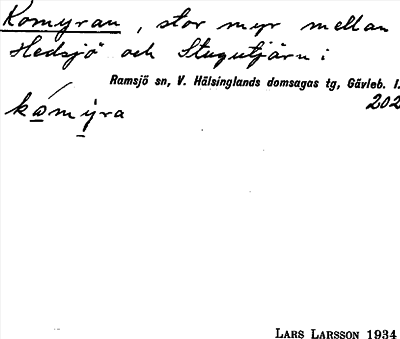 Komyran, stor myr mellan
Hedsjö och Stugutjärn:
Ramsjö sn, V. Hälsinglands domsagas tg, Gävleb. l.
202
kómýra
LARS LARSSON 1934